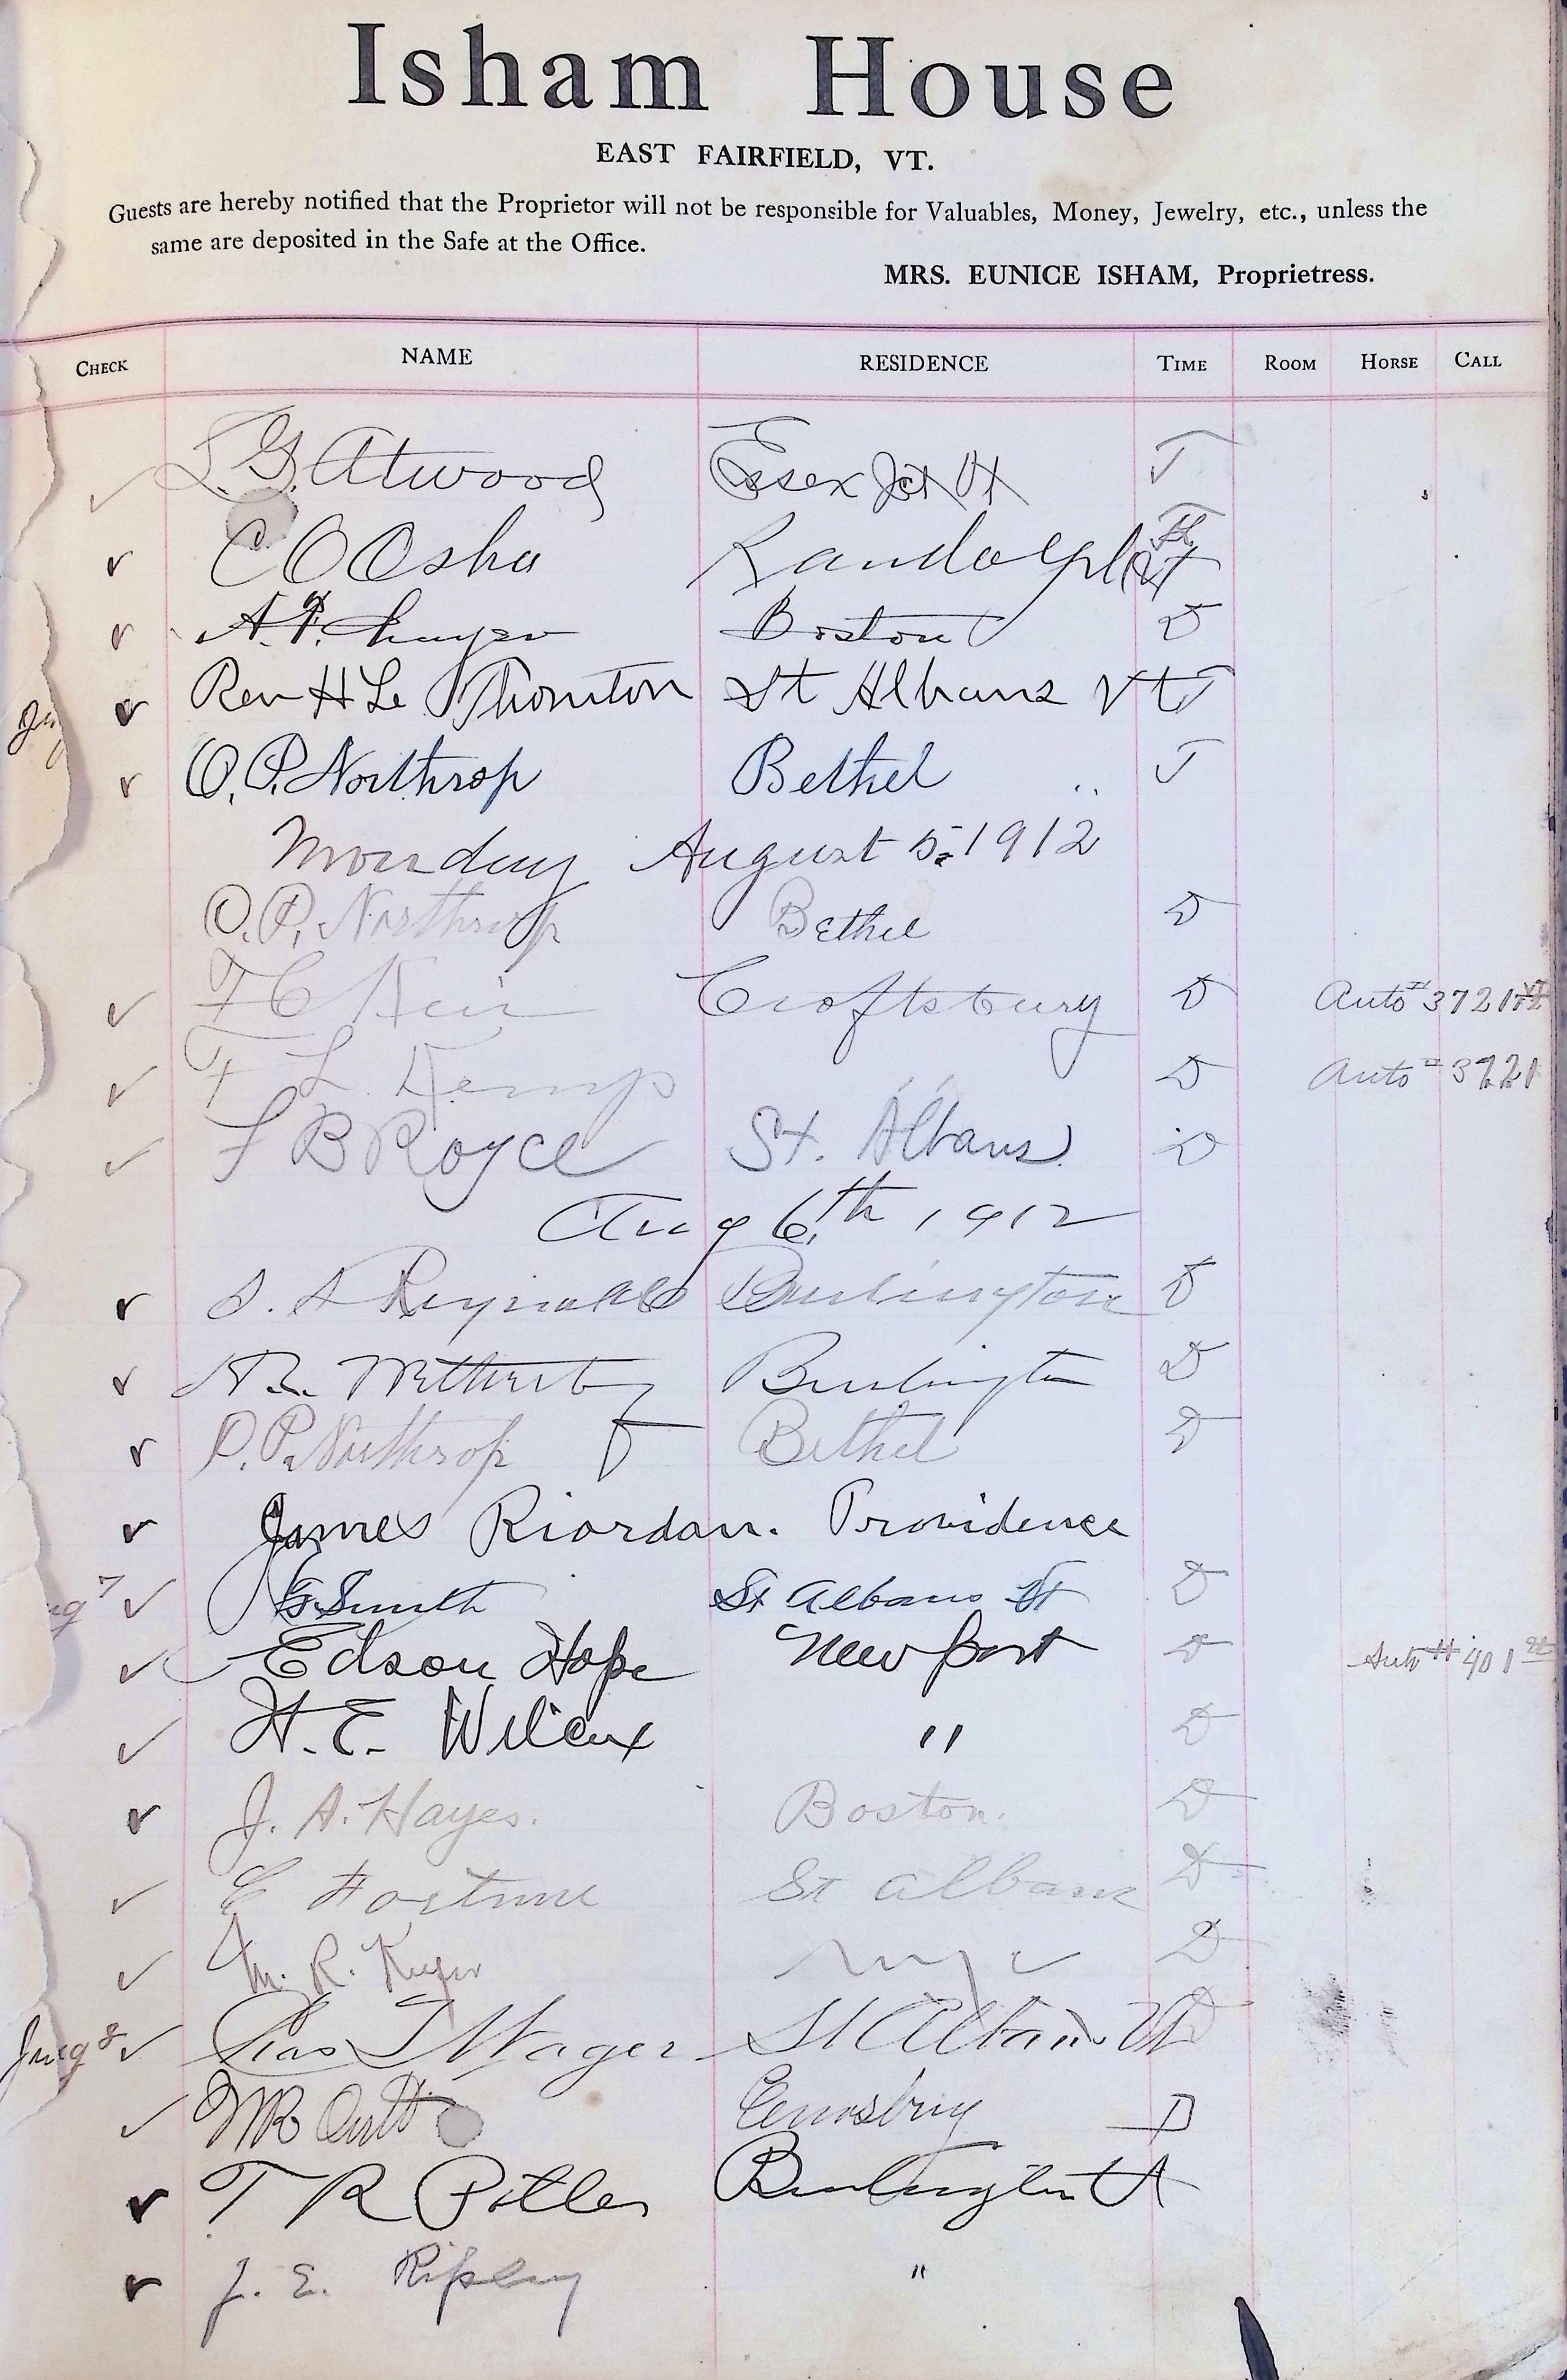 Isham House
EAST FAIRFIELD, VT.
Guests are hereby notified that the Proprietor will not be responsible for Valuables, Money, Jewelry, etc., unless the
same are deposited in the Safe at the Office.
MRS. EUNICE ISHAM, Proprietress.
CHECK NAME RESIDENCE TIME ROOM HORSE CALL
L. G. Atwood Essex Jct Vt T
C O Osha Randolph Vt
A. P. Boston D
Rev H Le Thornton St Albans Vt T
O. P. Northrop Bethel " T
Monday August 5, 1912
O. P. Northrop Bethel D
F C Croftsbury D Auto # 3721
F L Kemp D Auto # 3721
F B Royce St. Albans D
Aug 6th, 1912
S. A Reynolds Burlington D
Burlington D
O. P. Northrop Bethel D
James Riordan. Providence
7 G. Smith St Albans Vt D
Edson Hope Newport D Auto # 401
H. E. Wilcox " D
J. A. Hayes. Boston. D
E Fortune St Albans D
M. R. D
Aug 8 Chas T Wager St Albans Vt D
W R D
T R Burlington Vt
J. E. Ripley "